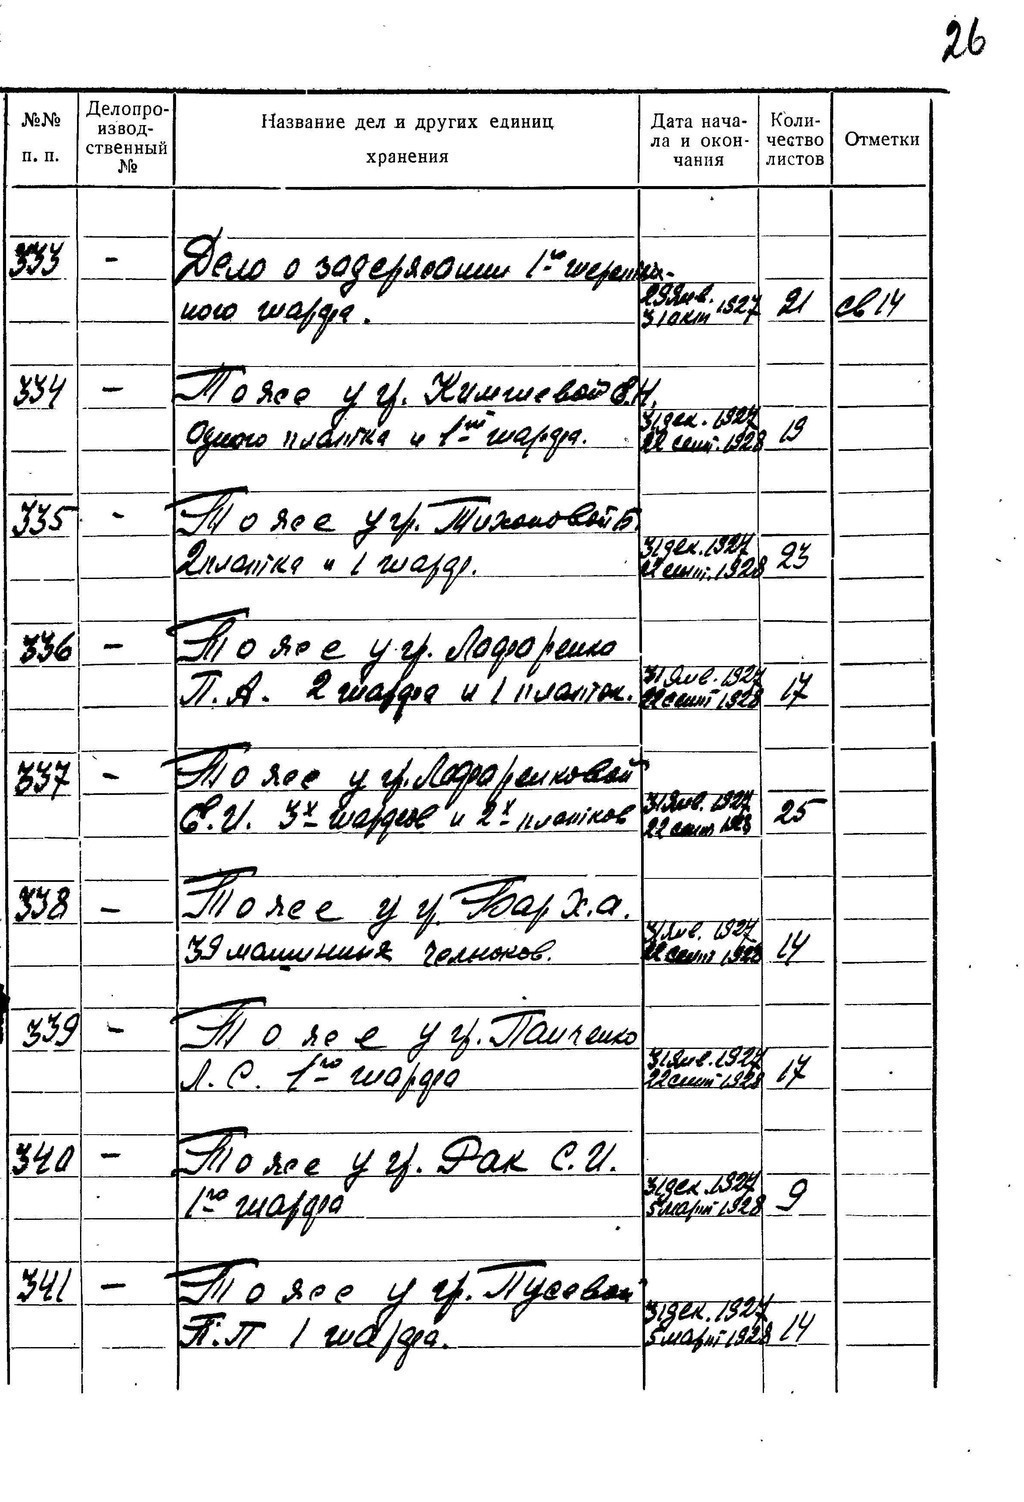 26
№№ п. п. Делопроизводственный № Название дел и других единиц хранения Дата начала и окончания Количество листов Отметки
333 - Дело о задержании 1го шерстя-
ного шарфа. 29 янв. 31 окт 1927 21 св 14
334 - То же у гр. Е.Н.
Одного платка и 1го шарфа. 31 дек. 1927 22 сент. 1928 19
335 - То же у гр. Тихоновой Б.
2 платка и 1 шарф. 31 дек. 1927 22 сент. 1928 23
336 - То же у гр. Лафаренко
П.А. 2 шарфа и 1 платок. 31 янв. 1927 22 сент 1928 17
337 - То же у гр. Лафаренковой
Е.И. 3х шарфов и 2х платков 31 янв. 1927 22 сент 1928 25
338 - То же у гр. Бар Х.А.
39 машинных челноков. 31 янв. 1927 22 сент 1928 14
339 - То же у гр. Панченко
Л.С. 1го шарфа 31 янв. 1927 22 сент 1928 17
340 - То же у гр. Рак С.И.
1го шарфа 31 дек. 1927 5 март 1928 9
341 - То же у гр. Пусевой
П.П 1 шарфа. 31 дек. 1927 5 март 1928 14